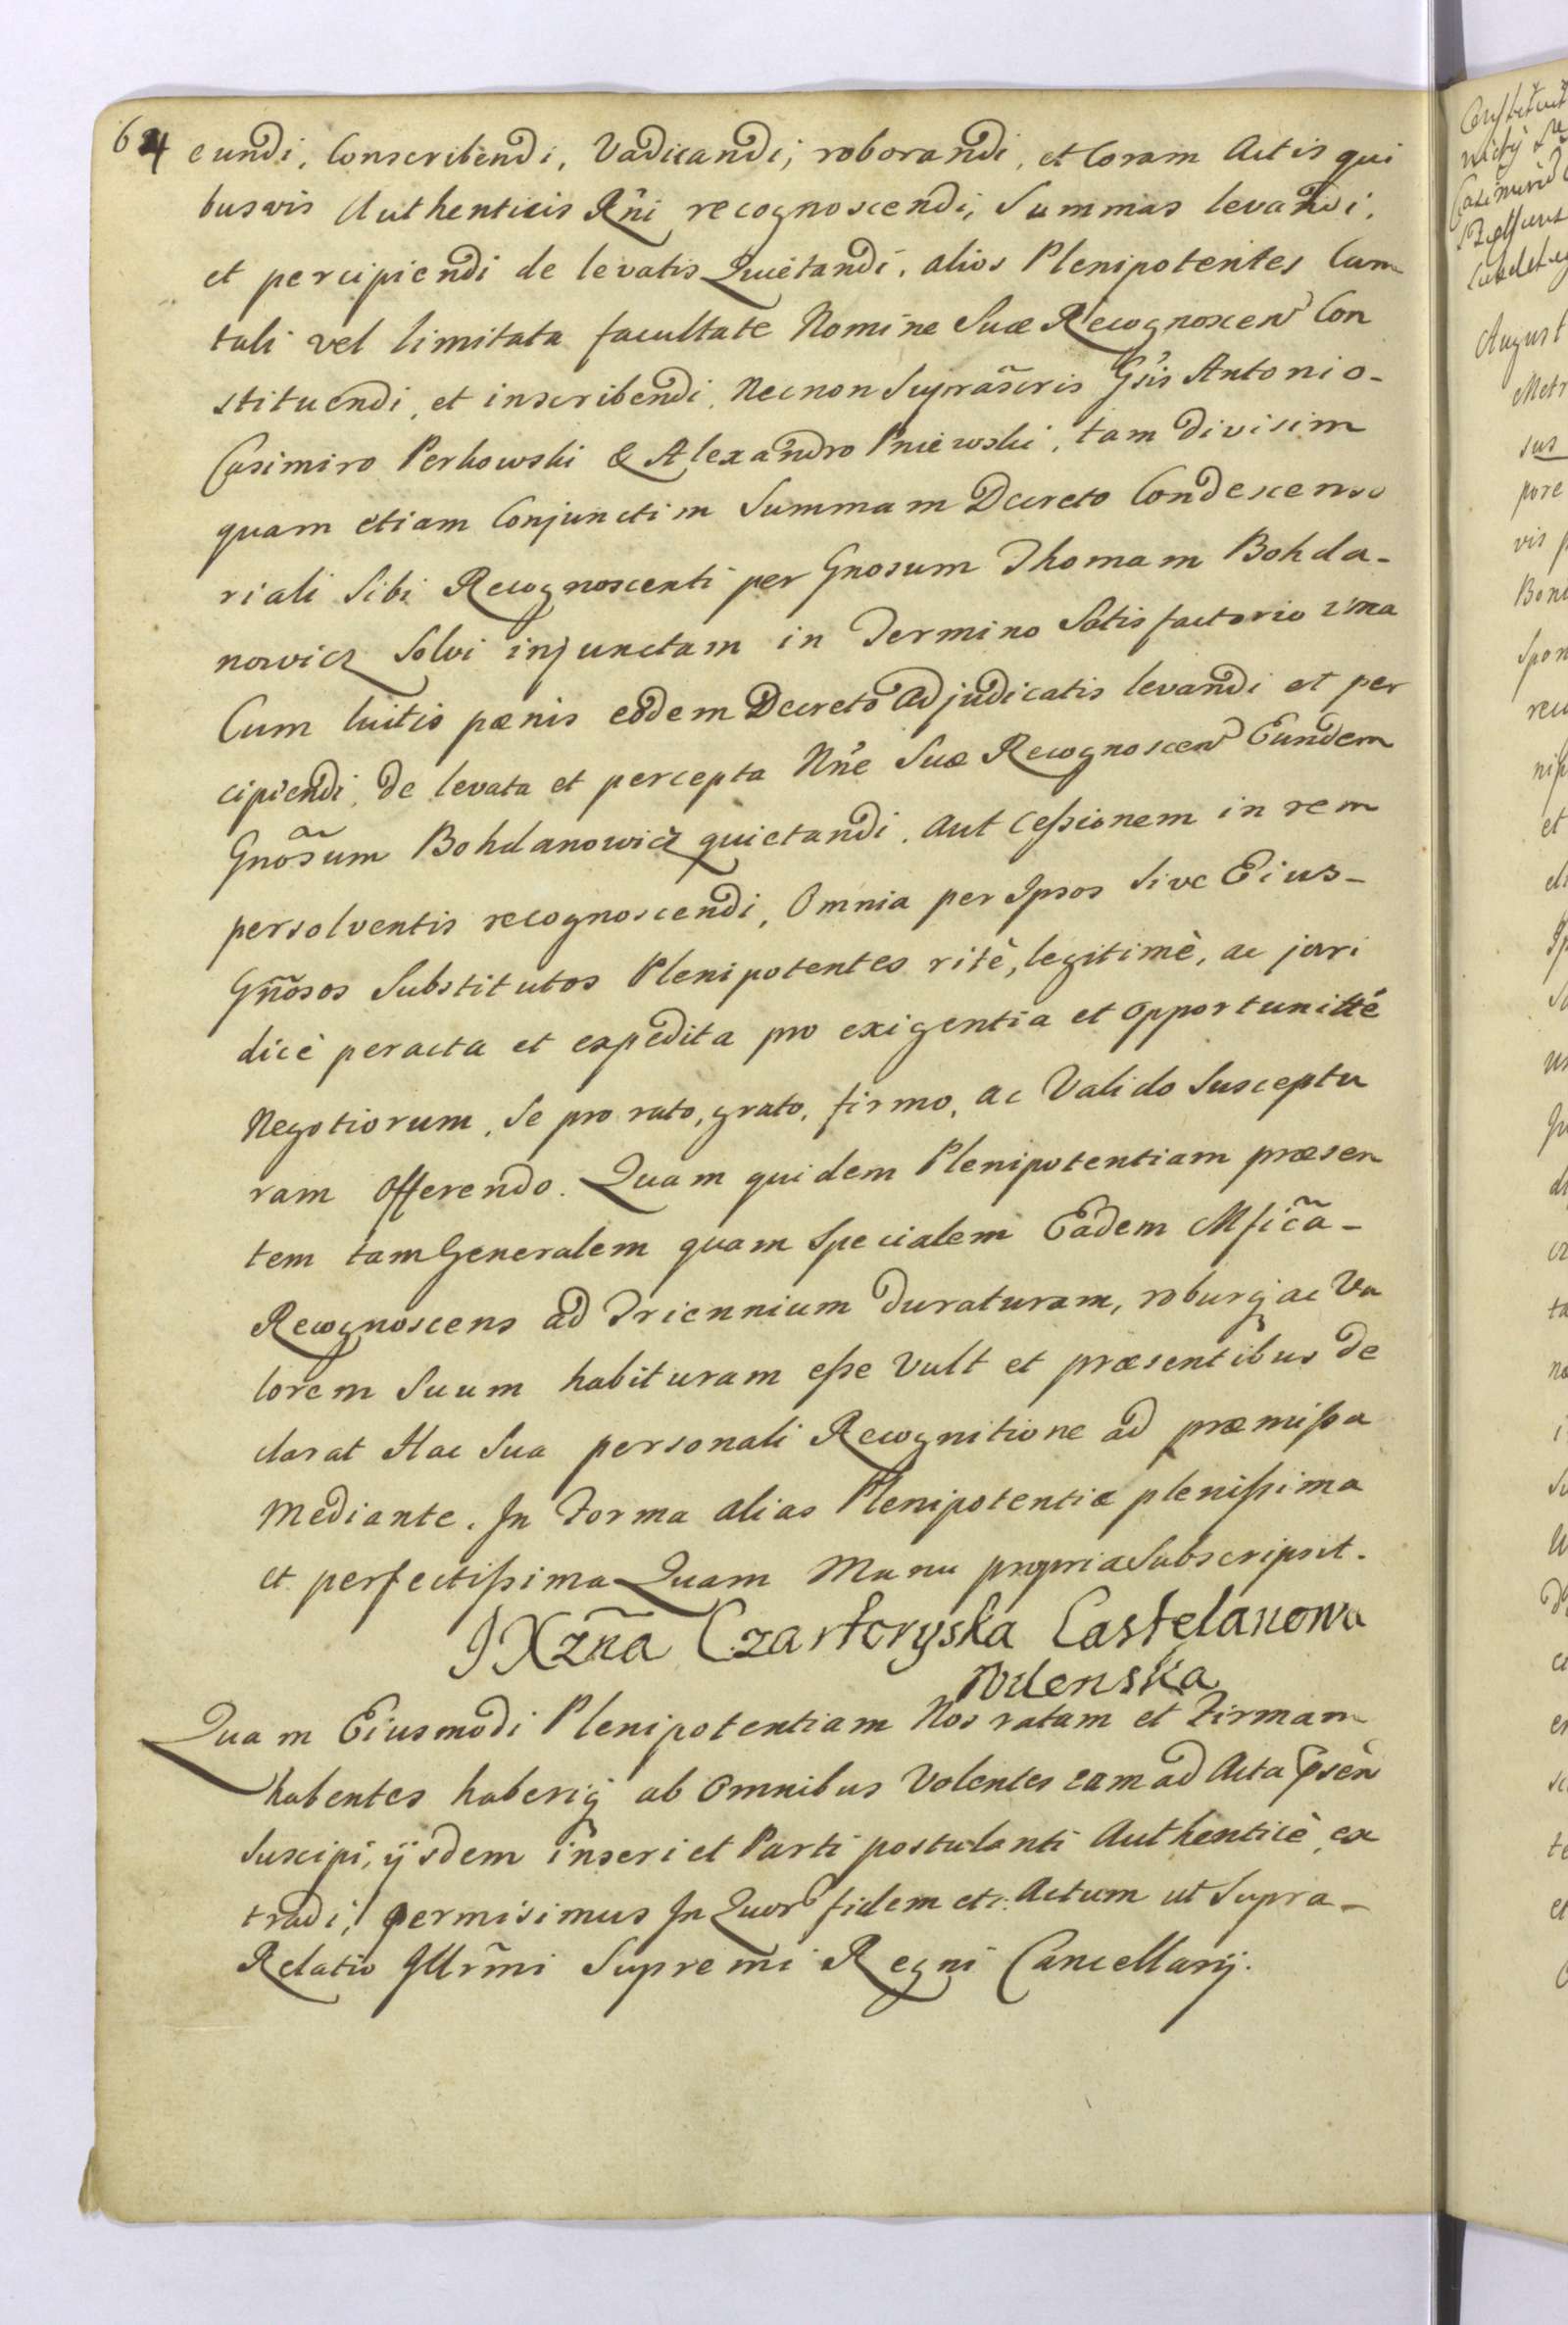 64
eundi, Conscribendi, Vadicandi, roborandi, et Coram Actis qui
busvis Authenticis Rñi recognoscendi, Summas levandi,
et percipiendi de levatis Quietandi, alios Plenipotentes Cum
tali vel limitata facultate Nomine Suæ Recognoscen Con
stituendi, et inscribendi, Necnon Suprãscris Gsis Antonio-
Casimiro Perkowski & Alexandro Pniewski, tam divisim
quam etiam Conjunctim Summam Decreto Condescenso
riali Sibi Recognoscenti per Gnosum Thomam Bohda-
nowicz Solvi injunctam in Termino Satisfactorio una
Cum luitis pænis eodem Decreto Adjudicatis levandi et per
cipiendi, de levata et percepta Nñe Suæ Recognoscen Eundem
Gnõsum Bohdanowicz quietandi, aut Ceßionem in rem
persolventis recognoscendi, Omnia per Ipsos Sive Eius-
Gñosos Substitutos Plenipotentes ritè, legitimè, ac juri
dicè peracta et expedita pro exigentia et opportunitté
Negotiorum, Se pro rato, grato, firmo, ac Valido Susceptu
ram Offerendo. Quam quidem Plenipotentiam præsen
tem tam Generalem quam Specialem Eadem Mficã-
Recognoscens ad Triennium duraturam, roburq ac Va
lorem Suum habituram eße Vult et præsentibus de
clarat Hac Sua personali Recognitione ad præmißa
Mediante. In Forma alias Plenipotentiæ plenißima
et perfectißima Quam Manu propria Subscripsit.
J Xzña Czartoryska Castelanowa
Wilenska
Quam Eiusmodi Plenipotentiam Nos ratam et Firmam
habentes haberiq ab Omnibus Volentes eam ad Acta p̃sen
Suscipi, ijsdem inseri et Parti postulanti Authenticè, ex
tradi, permisimus In Quor fidem etc. Actum ut Supra-
Relatio Jllrm̃i Supremi Regni Cancellarij.
August